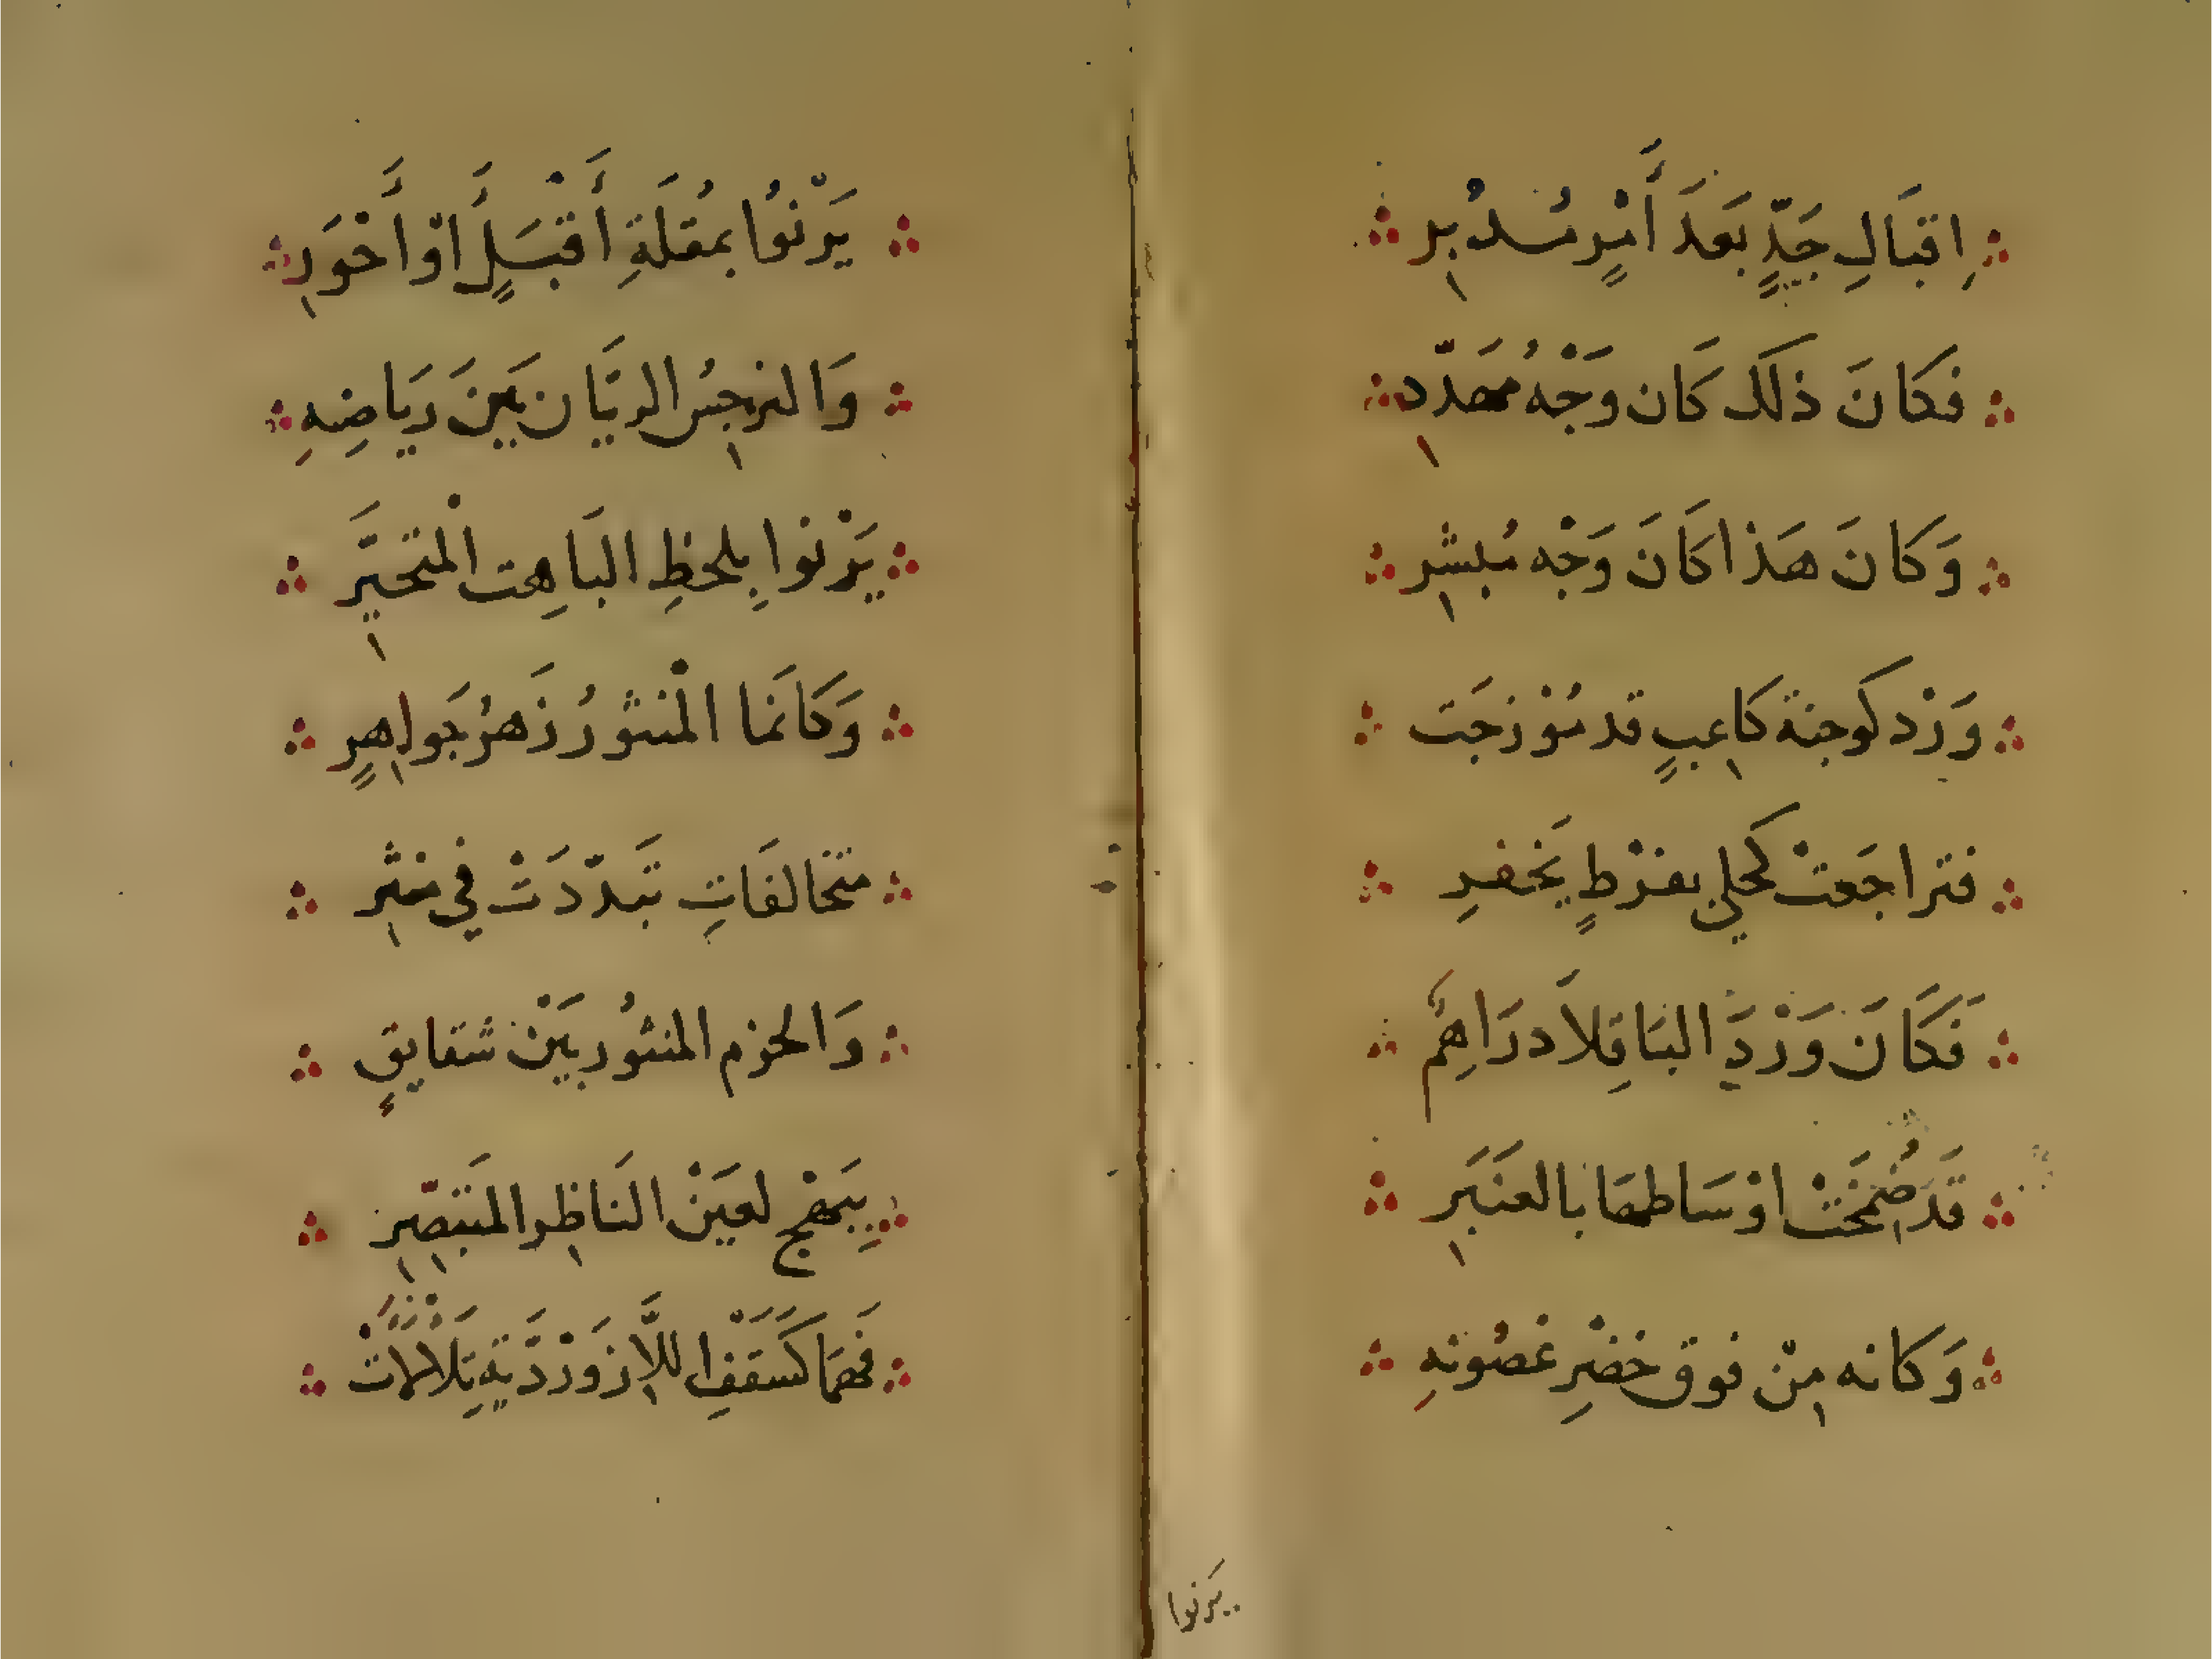 اِقبَالِ جَدٍّ بَعدَ أَمْرٍ مُدْبِرِ
فكَانَ ذلكَ كَان وَجْهُ مهَدّدٍ
وَكَانَ هَذا كَانَ وَجْه مُبشرِ
وَرْد كوجنة كاعبٍ قد مُوْزجَت
فتراجَعتْ كحلي بفرْطٍ يَخفرِ
فَكَانَ وَرْدَ البَاقِلاَ درَاهِمٌ
قَدْ ضُمِّخَتْ اوْسَاطها بالعنبَرِ
وَكانه مِنْ فوق خضْرِ غصُونهِ
يرنوا
يَرْنُوا بمُقلَةِ أَقبَلٍ أَوْ أَحْوَرِ
وَالنرجسُ الريَّان بَينَ ريَاضِهِ
يَرْنوا بِلحظِ البَاهِت الْمتحيَّرِ
وَكَانَما الْمنثورُ زَهرُ جَواهِرٍ
متخالفَاتٍ تَبدّدَتْ في منثرِ
وَالحزم المنثُور بَيْنَ شقايقٍ
يبَهج لعَيْن النَاظِر المتَبَصِّرِ
فهمَا كسَقفِ اللاَّزوَرْدَّيةِ تلالات